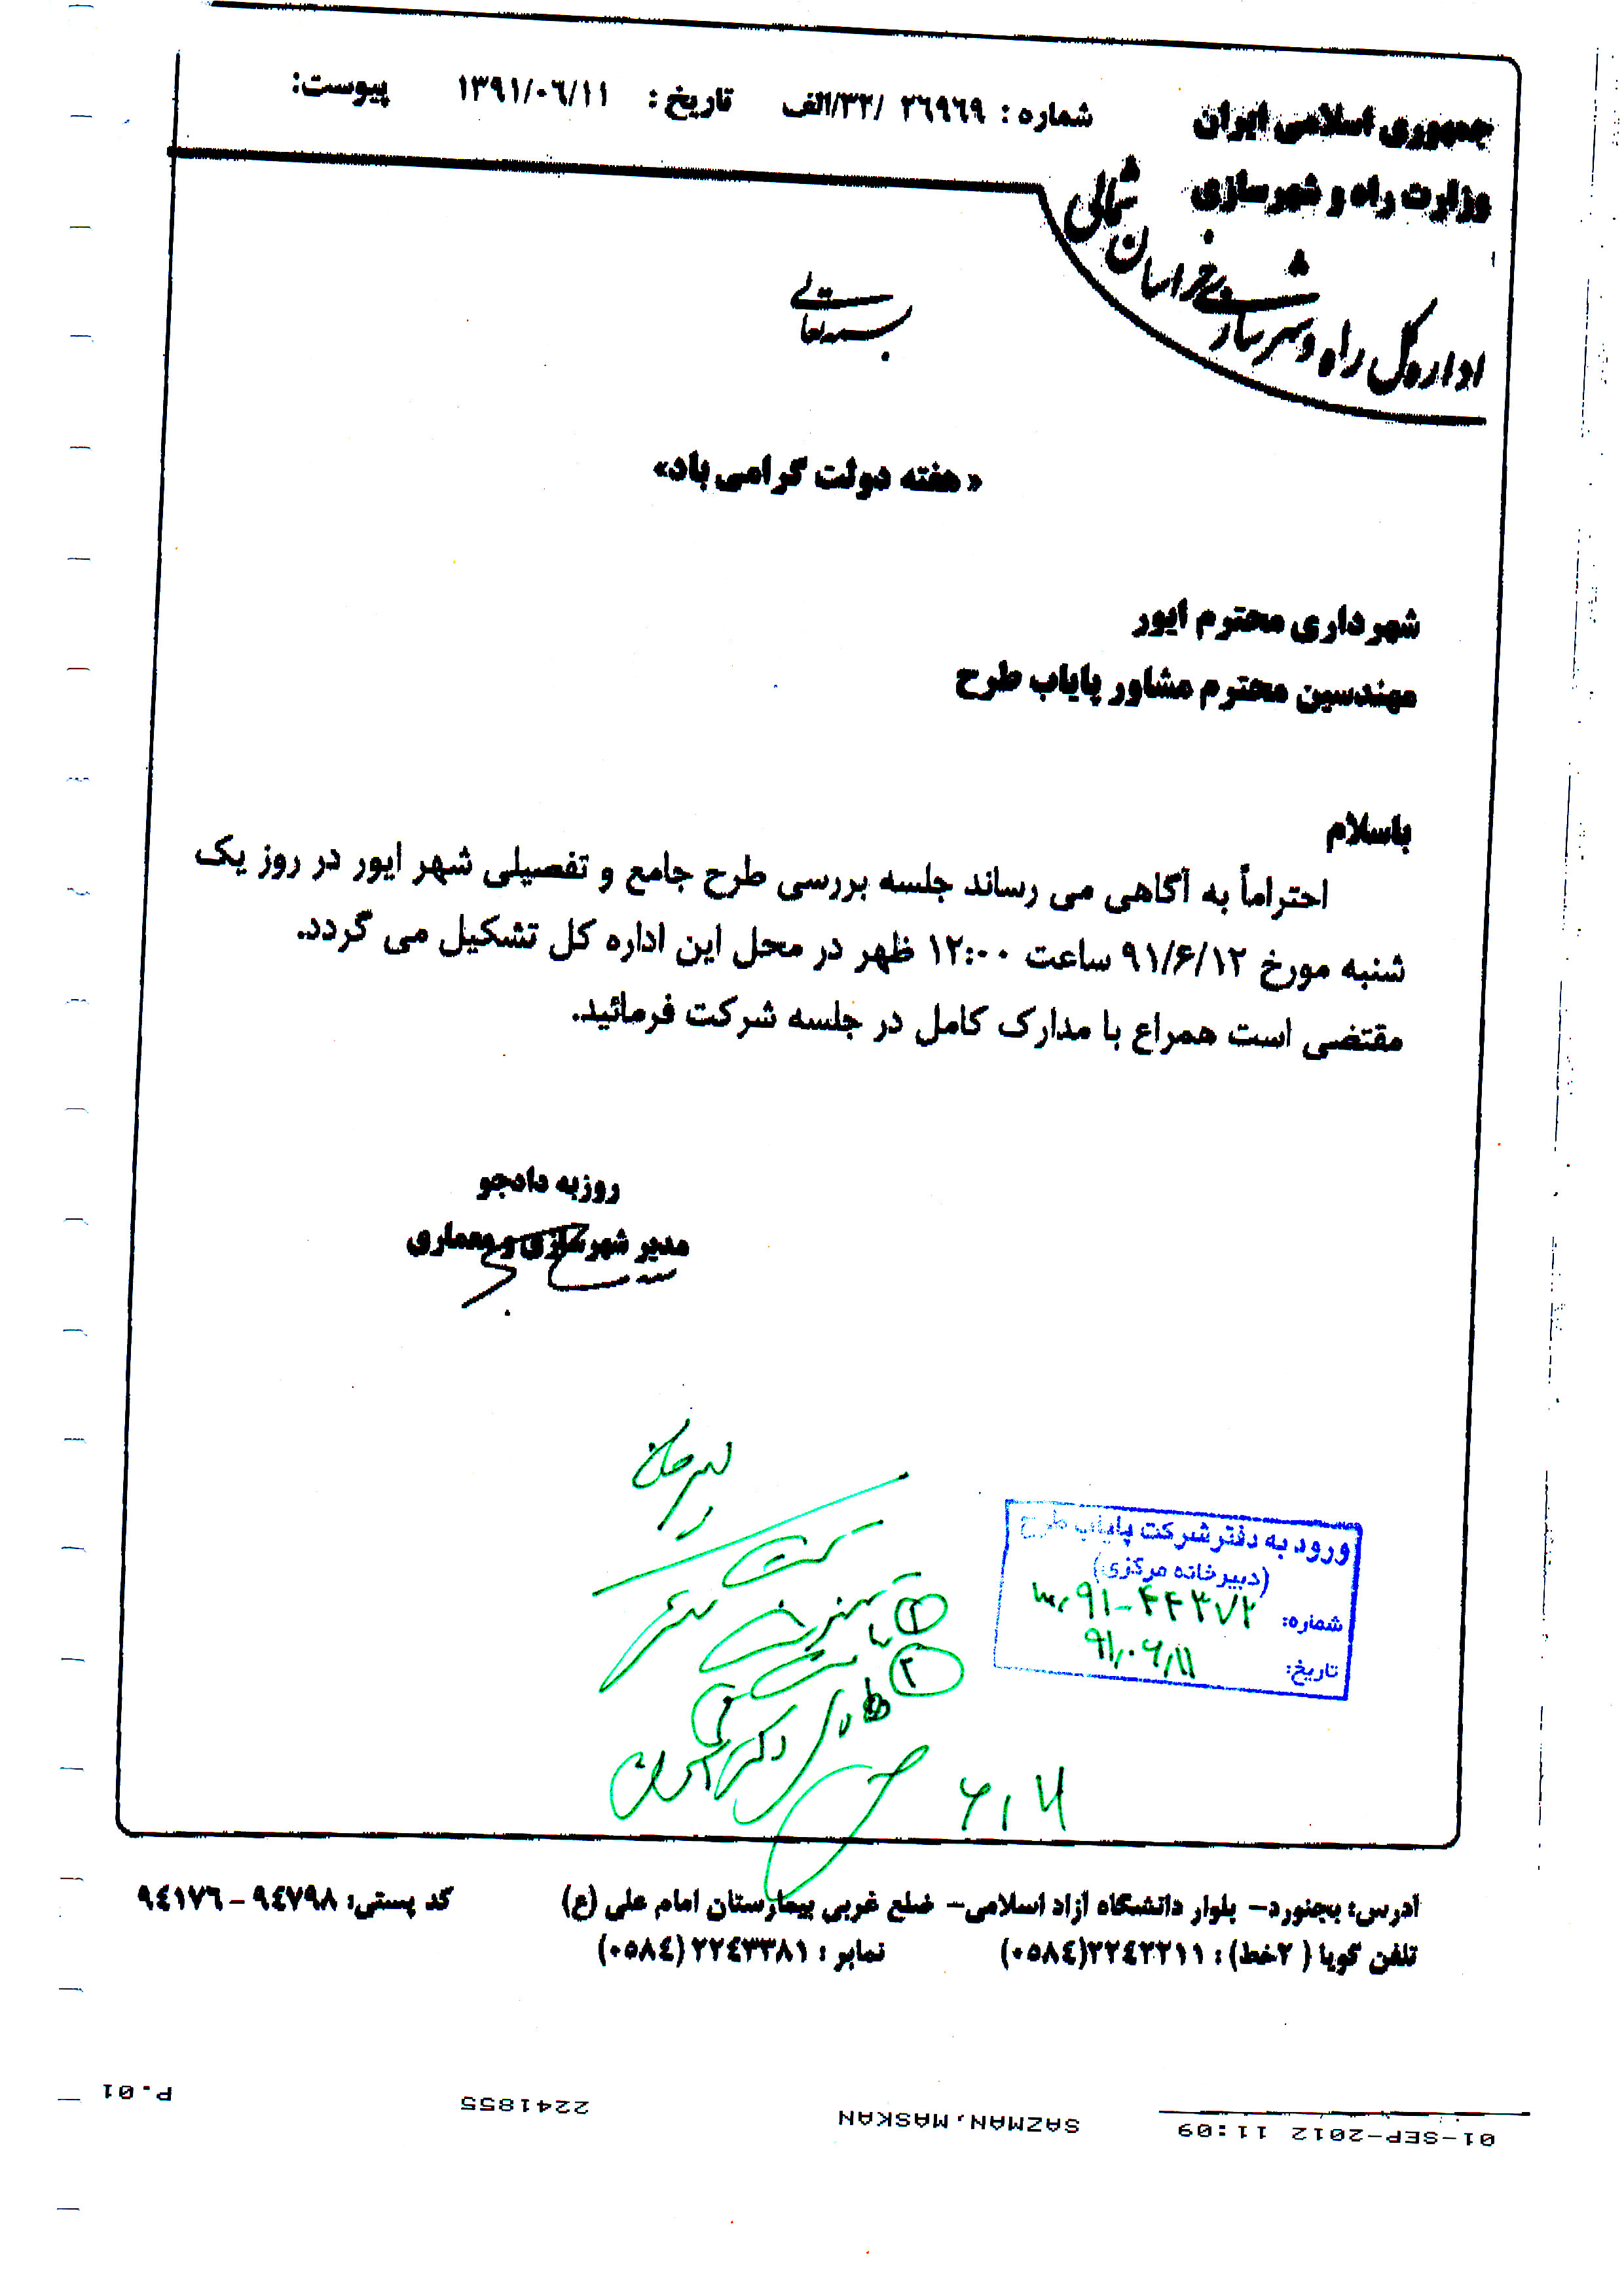 جمهوری اسلامی ایران
وزارت راه و شهرسازی
اداره کل راه و شهرسازی خراسان شمالی
شماره: ۲۶۹۶۹ /۳۲/الف تاریخ: ۱۳۹۱/۰۶/۱۱ پیوست:
بسمه تعالی
«هفته دولت گرامی باد»
شهرداری محترم ایور
مهندسین محترم مشاور پایاب طرح
باسلام
احتراماً به آگاهی می رساند جلسه بررسی طرح جامع و تفصیلی شهر ایور در روز یک
شنبه مورخ ۹۱/۶/۱۲ ساعت ۱۲:۰۰ ظهر در محل این اداره کل تشکیل می گردد.
مقتضی است همراع با مدارک کامل در جلسه شرکت فرمائید.
روزبه دادجو
مدیر شهرسازی و معماری
ورود به دفتر شرکت پایاب طرح
(دبیرخانه مرکزی)
شماره: ۹۱-۴۴۳۷۲
تاریخ: ۹۱،۰۶،۱۱
آدرس: بجنورد- بلوار دانشگاه آزاد اسلامی- ضلع غربی بیمارستان امام علی (ع) کد پستی: ۹٤۷۹۸ - ۹٤۱۷٦
تلفن گویا (۲خط): ۲۲٤۲۲۱۱(۰۵۸٤) نمابر: ۲۲٤۳۳۸۱(۰۵۸٤)
01-SEP-2012 11:09 SAZMAN.MASKAN 2241855 P.01